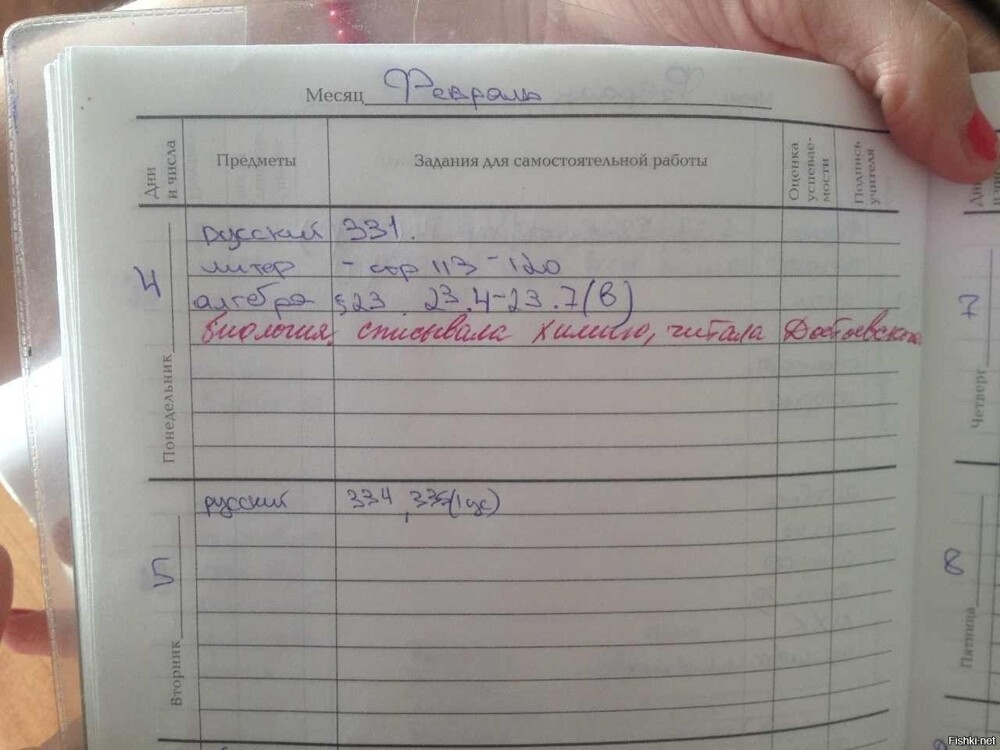 Месяц Февраль
Дни и числа
Предметы
Задания для самостоятельной работы
Оценка успевае-
мости
Подпись учителя
4
Понедельник
русский 331.
литер - стр 113-120
алгебра §23. 23.4-23.7(в)
Биология, списывала химию, читала Достоевского
5
Вторник
русский 334, 335(1 ус)
7
Четверг
8
Пятница
Fishki.net